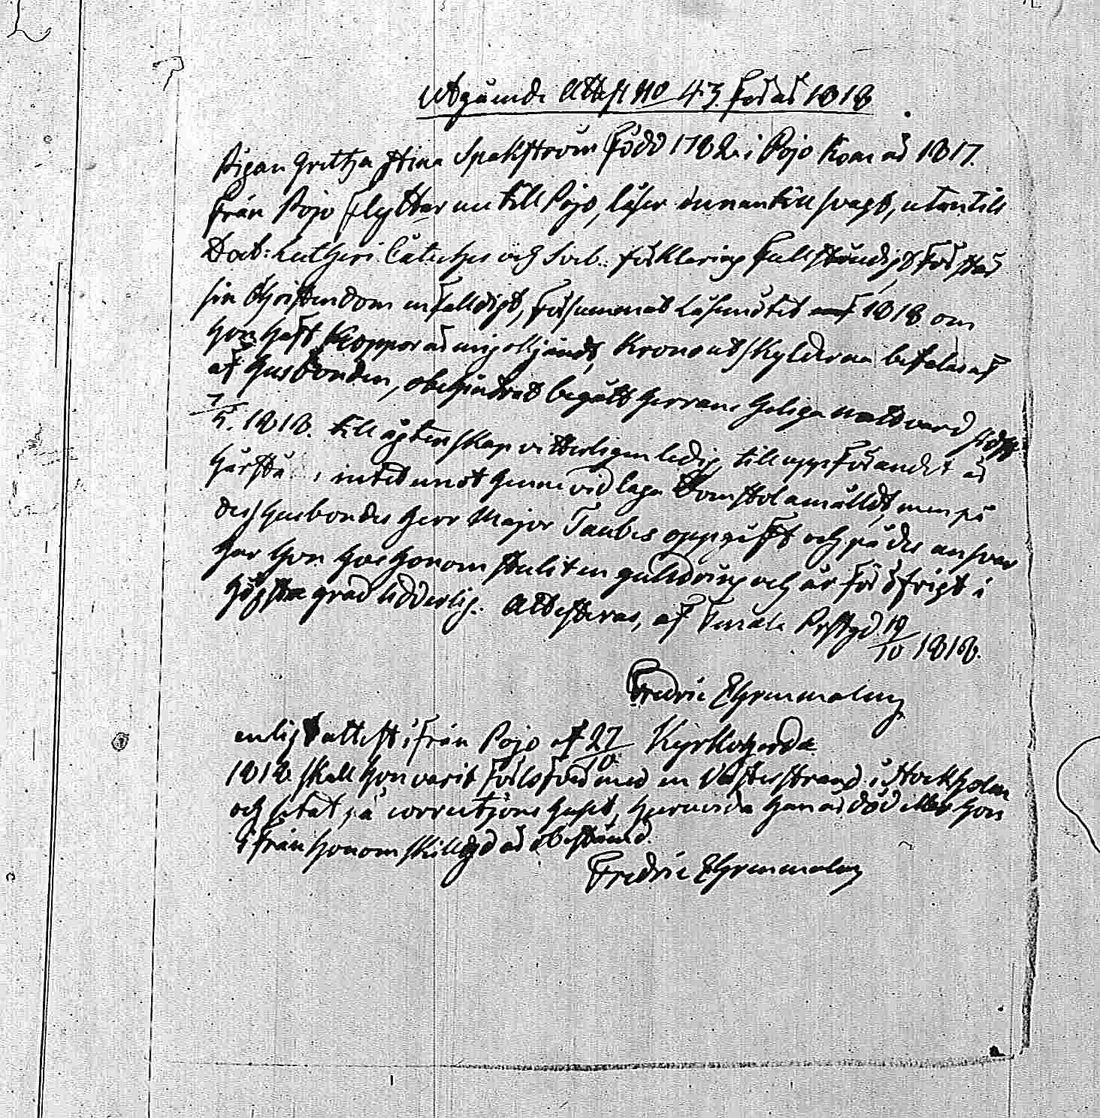 Utgående Attest No 43 för år 1818
Pigan Gretha Stina Spakström född 1782 i Pojo kom år 1817
från Pojo flyttar nu till Pojo, läser innantill svagt, utantill
Doct: Lutheri Catches och Sveb. förklaring fullständigt, förstår
sin Christendom enfalldigt, försummat Läsmötet 1818 om
hon haft Koppor är mig okjändt, Kronoutskylderna betalas af
af Husbonden, obehindrat begått Herrans Heliga nattvard sidst
7/5. 1818. till ägtenskap vitterligen ledig, till uppförandet är
, intet emot henne vid laga Domstol anmälldt, men på
des husbondes Herr Major Taubes uppgift och på des ansvar
har hon hos honom stulit en guldring och är för öfrigt i
högsta grad lidderlig. Attesteras, af Tenala Prstgd 19/10 1818.
Fredric Ehrnmalm
enligt attest ifrån Pojo af 27/10 Kyrkoherde
1818 skall hon varit förlofvad med en Västerstrand i Stockholm
och setat på corrections huset, huruvida han är död eller hon
ifrån honom skilld är obestämd.
Fredric Ehrnmalm